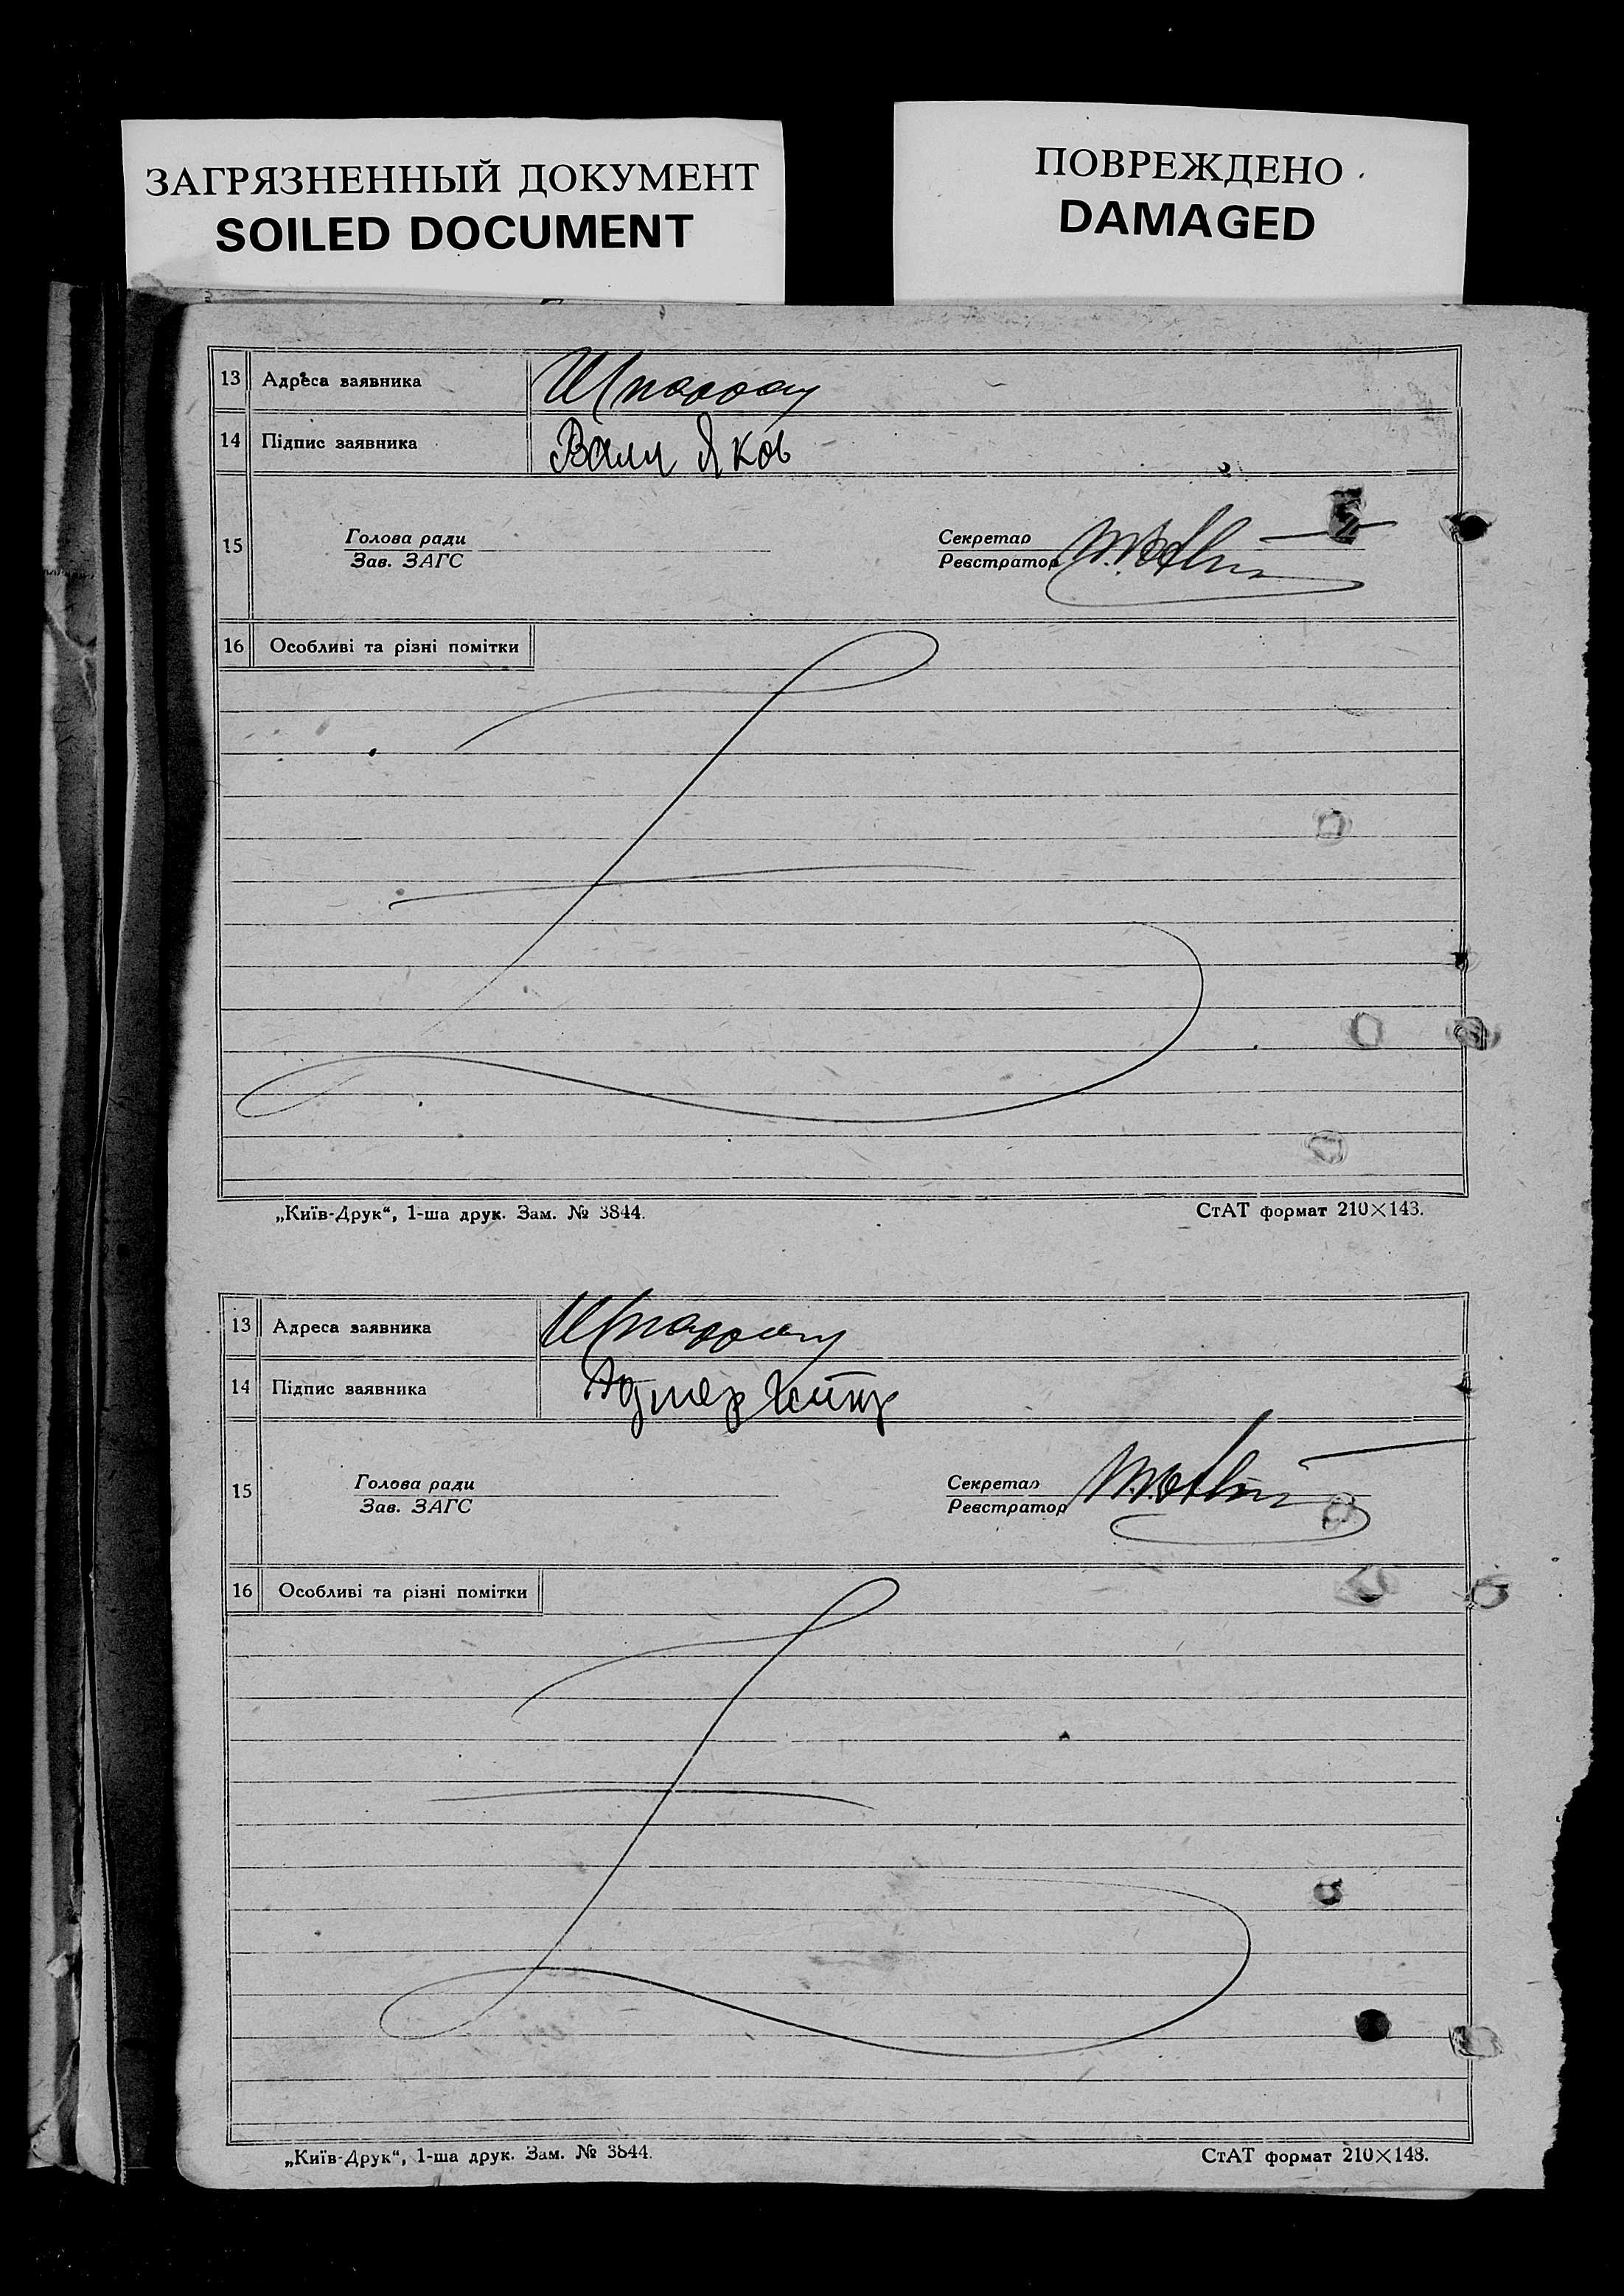 ЗАГРЯЗНЕННЫЙ ДОКУМЕНТ
SOILED DOCUMENT
ПОВРЕЖДЕНО
DAMAGED
13 Адреса заявника
14 Підпис заявника Валл Яков
15 Голова ради
Зав. ЗАГС
Секретар
Реєстратор
16 Особливі та різні помітки
„Київ-Друк“, 1-ша друк. Зам. № 3844. СтАТ формат 210×143.
13 Адреса заявника
14 Підпис заявника
15 Голова ради
Зав. ЗАГС
Секретар
Реєстратор
16 Особливі та різні помітки
„Київ-Друк“, 1-ша друк. Зам. № 3844. СтАТ формат 210×148.